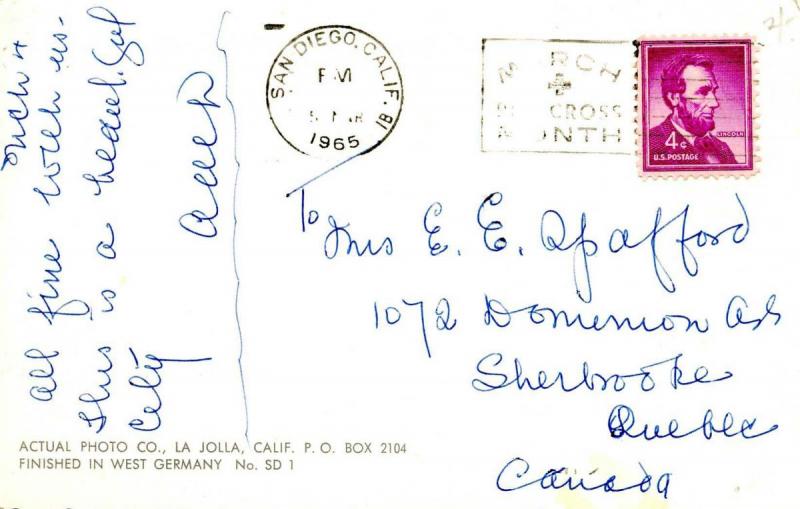 March 4
All fine with us.
This is a beautiful
City
SAN DIEGO, CALIF. 81
PM
5 MAR
1965
MARCH
RED CROSS
MONTH
LINCOLN
4¢
U.S. POSTAGE
To
Mrs E. E. Spafford
1072 Dominion
Sherbrooke
Quebec
Canada
ACTUAL PHOTO CO., LA JOLLA, CALIF. P. O. BOX 2104
FINISHED IN WEST GERMANY No. SD 1